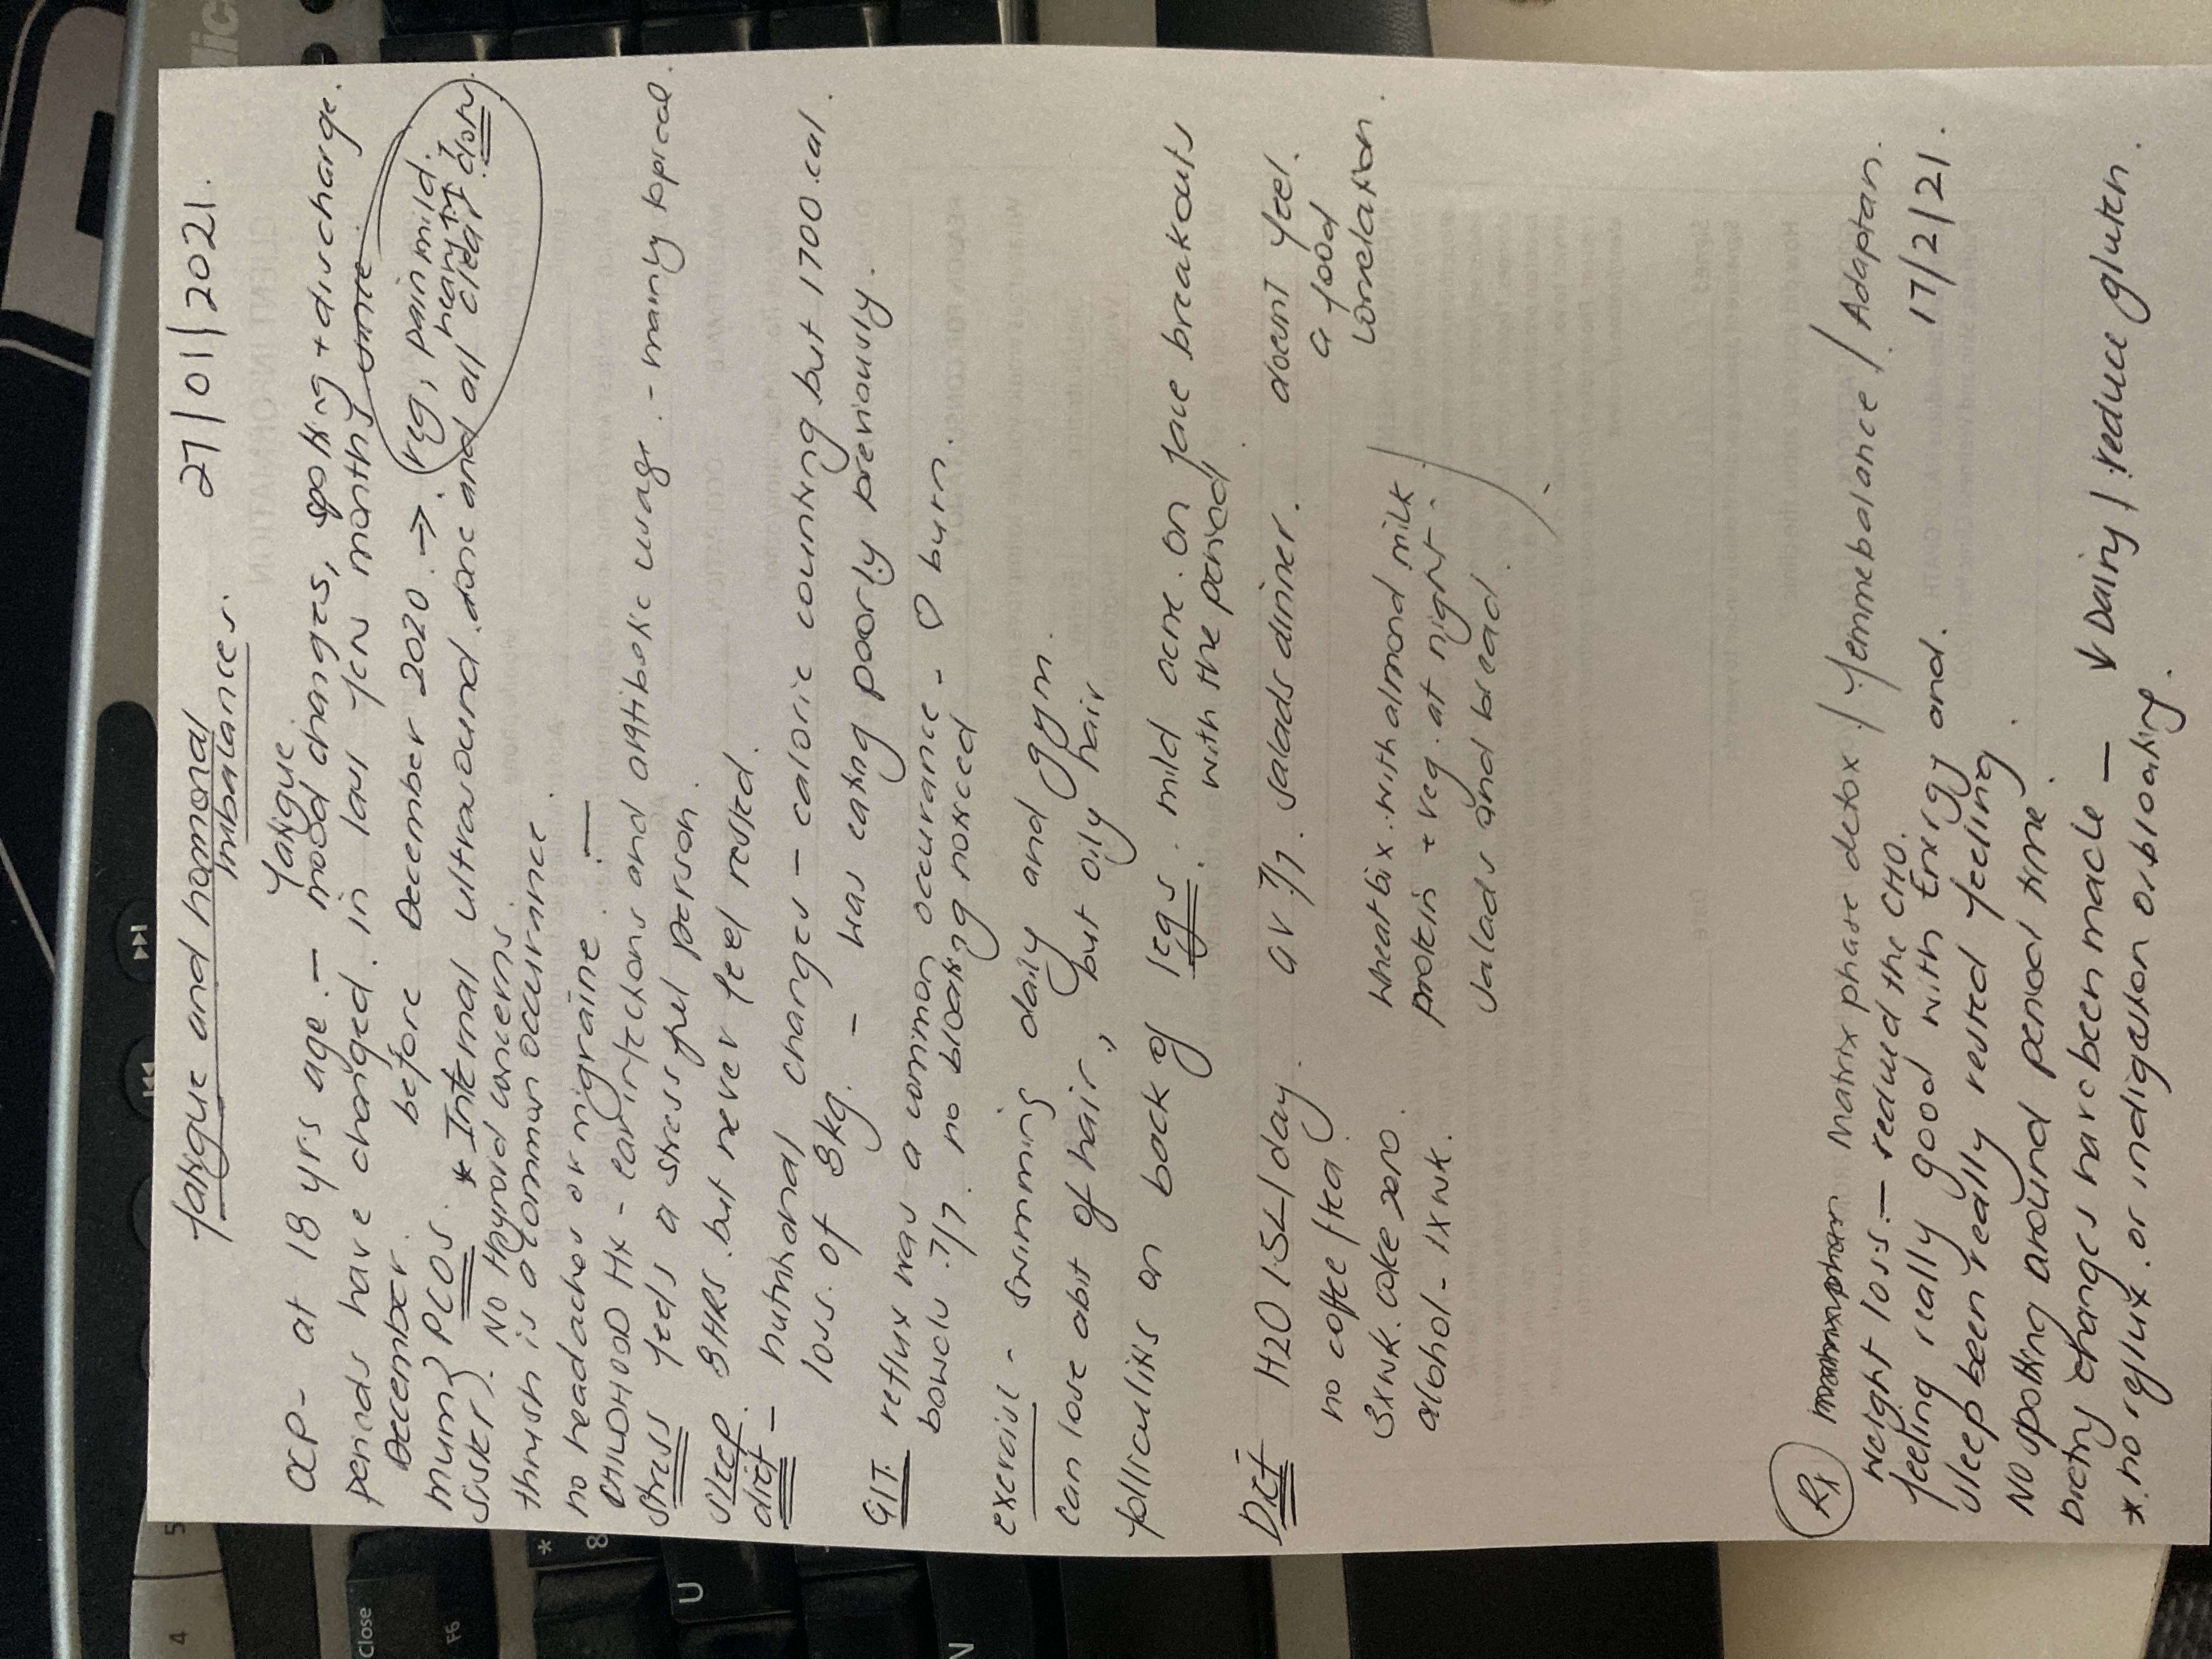 fatigue and hormonal imbalances. 27/01/2021.
fatigue
OCP - at 18 yrs age. - mood changes, spotting + discharge.
periods have changed in last few months since
December. before December 2020 → reg, pain mild.
heavy
clear
mum } PCOS. * Internal ultrasound. done and all
sister } NO thyroid concerns.
thrush is a common occurance.
no headaches or migraine. -
CHILDHOOD Hx - ear infections and antibiotic usage. - mainly topical.
stress feels a stressful person.
sleep. 8HRS. but never feel rested.
diet - nutritional changes - calorie counting but 1700.cal
loss. of 8kg. - was eating poorly previously.
GIT reflux was a common occurance - burn.
bowels 7/7. no bloating noticed
exercise - swimming daily and gym.
can lose abit of hair, but oily hair
folliculitis on back of legs. mild acne. on face breakouts
with the period
Diet H2O 1.5L/day. av 7/7. salads dinner. doesnt feel.
a food
correlation.
no coffee/tea.
3xwk. coke zero.
alcohol - 1xwk.
wheatbix. with almond milk
protein + veg. at night.
salads and bread.
Rx Matrix phase detox / femmebalance / Adaptan.
17/2/21.
weight loss. - reduced the CHO.
feeling really good with Energy and.
sleep been really rested feeling
NO spotting around period time.
Dietry changes have been made - ↓ Dairy / reduce gluten.
* no reflux. or indigestion or bloating.
Close
F6
4
5
*
8
U
N